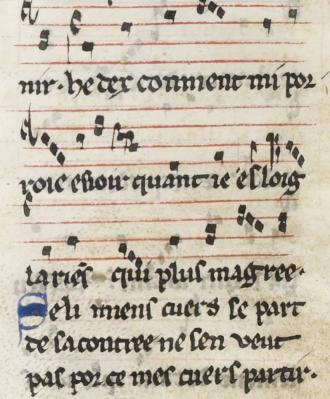 nir. he dex comment mi por
roie esioir quant ie esloig
la ries qui plus magree.
Se li miens cuers se part
de sa contree ne sen veut
pas por ce mes cuers partir.